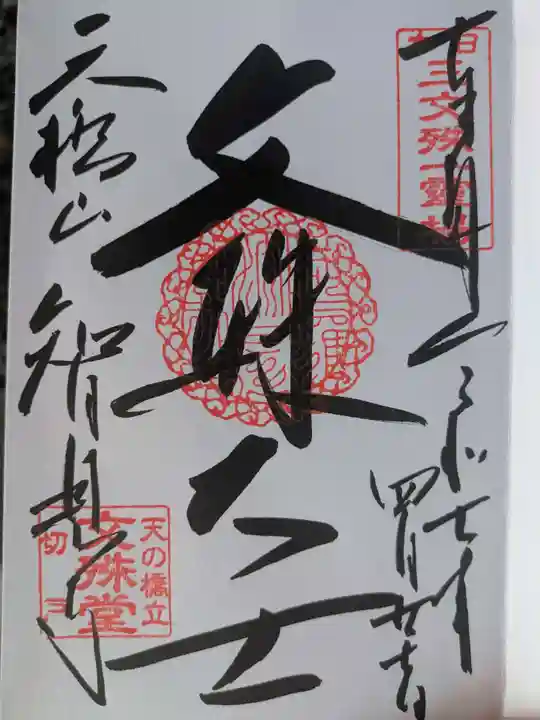 奉拝
令和七年
四月廿七日
日本三文殊一霊場
文殊大士
天橋山
智恩寺
天の橋立
切戸
文殊堂